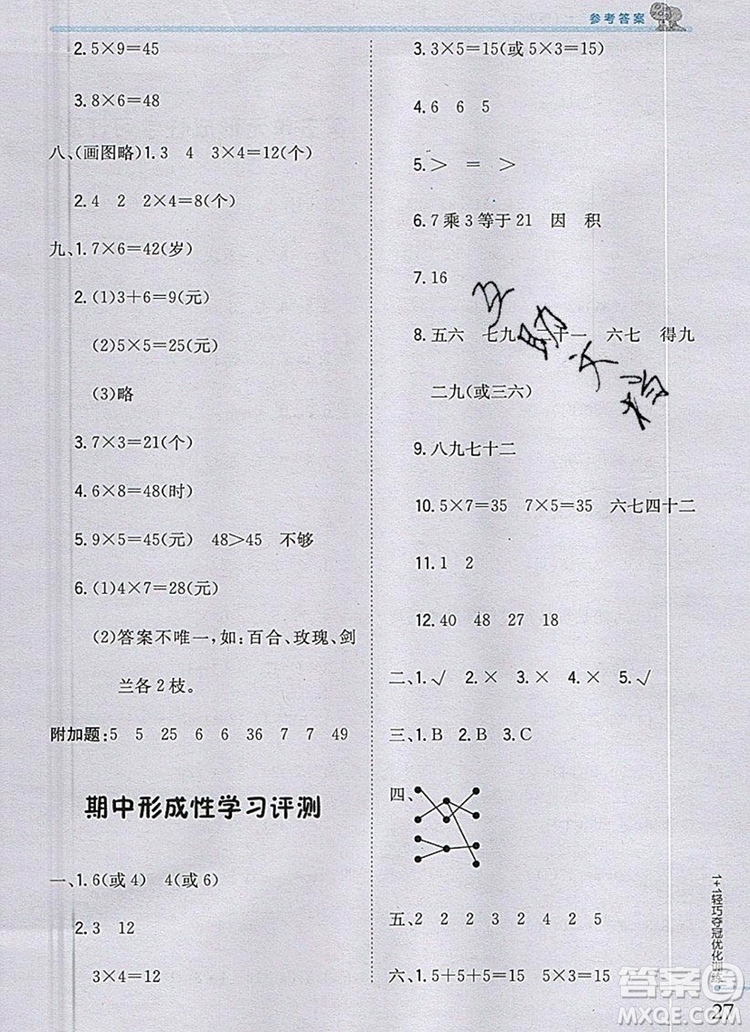 参考答案
2.5×9=45
3.8×6=48
八、(画图略)1.3 4 3×4=12(个)
2.4 2 2×4=8(个)
九、1.7×6=42(岁)
2.(1)3+6=9(元)
(2)5×5=25(元)
(3)略
3.7×3=21(个)
4.8×6=48(时)
5.9×5=45(元) 48>45 不够
6.(1)4×7=28(元)
(2)答案不唯一,如:百合、玫瑰、剑
兰各2枝。
附加题:5 5 25 6 6 36 7 7 49
期中形成性学习评测
一、1.6(或4) 4(或6)
2.3 12
3×4=12
3.3×5=15(或5×3=15)
4.6 6 6
5.> = >
6.7乘3等于21 因 积
7.16
8.五六 七九 二十一 六七 得九
二九(或三六)
9.八九七十二
10.5×7=35 7×5=35 六七四十二
11.1 2
12.40 48 27 18
二、1.√ 2.× 3.× 4.× 5.√
三、1.B 2.B 3.C
四、
五、2 2 2 2 2 2
六、1.5+5+5=15
1+1轻巧夺冠优化训练
27
答案圈
MXQE.COM